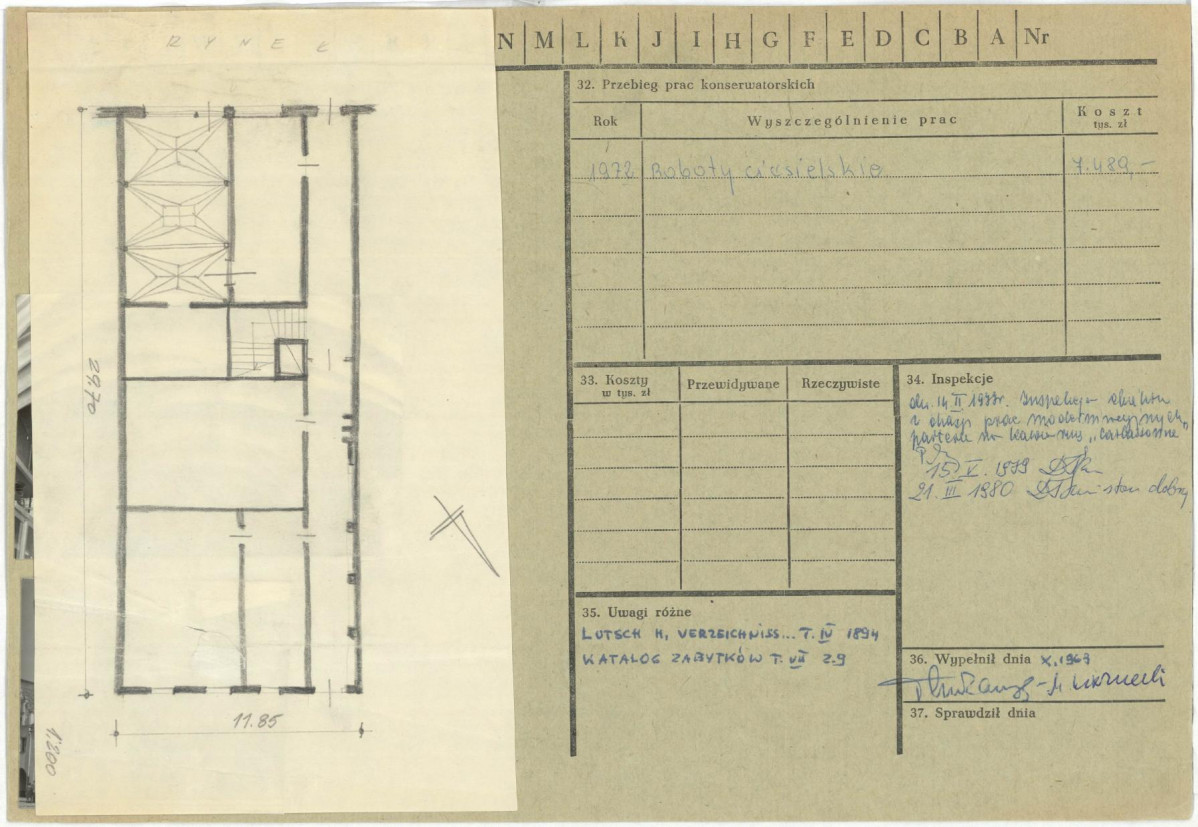 RYNEK
29.70
11.85
1:200
N M L K J I H G F E D C B A Nr
32. Przebieg prac konserwatorskich
Rok Wyszczególnienie prac Koszt
tys. zł
1972 Roboty ciesielskie 7.489,-
33. Koszty
w tys. zł
Przewidywane Rzeczywiste
34. Inspekcje
dn. 14 II 1973r. Inspekcja
z okazji prac modernizacyjnych
parteru na kawiarnię
15. V. 1979
21. III 1980 stan dobry
35. Uwagi różne
LUTSCH H, VERZEICHNISS... T. IV 1894
KATALOG ZABYTKÓW T. VII Z.9
36. Wypełnił dnia X.1963
37. Sprawdził dnia